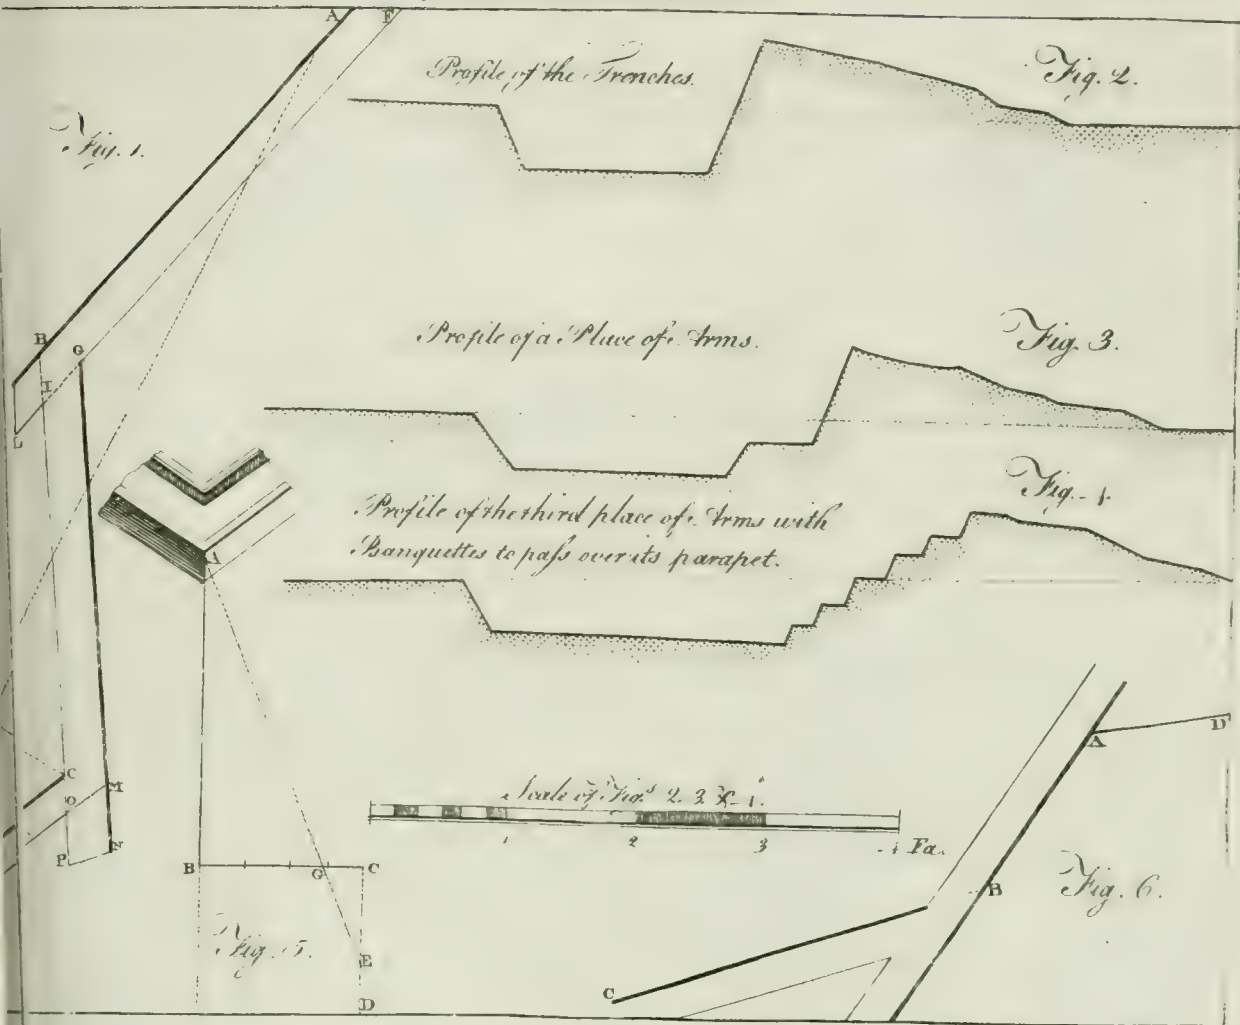 A F
Profile of the Trenches.
Fig. 2.
Fig. 1.
B G
I
L
Profile of a Place of Arms.
Fig. 3.
Fig. 4.
Profile of the third place of Arms with
Banquettes to paſs over its parapet.
A
A D
C
M
O
N
P
Scale of Figs. 2. 3. & 4.
1 2 3 4 Fa.
B G C
B
Fig. 6.
Fig. 5.
E
C
D